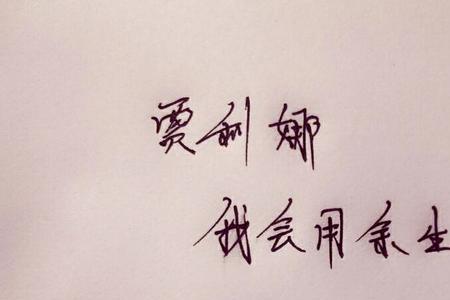 贾利娜
我会用余生